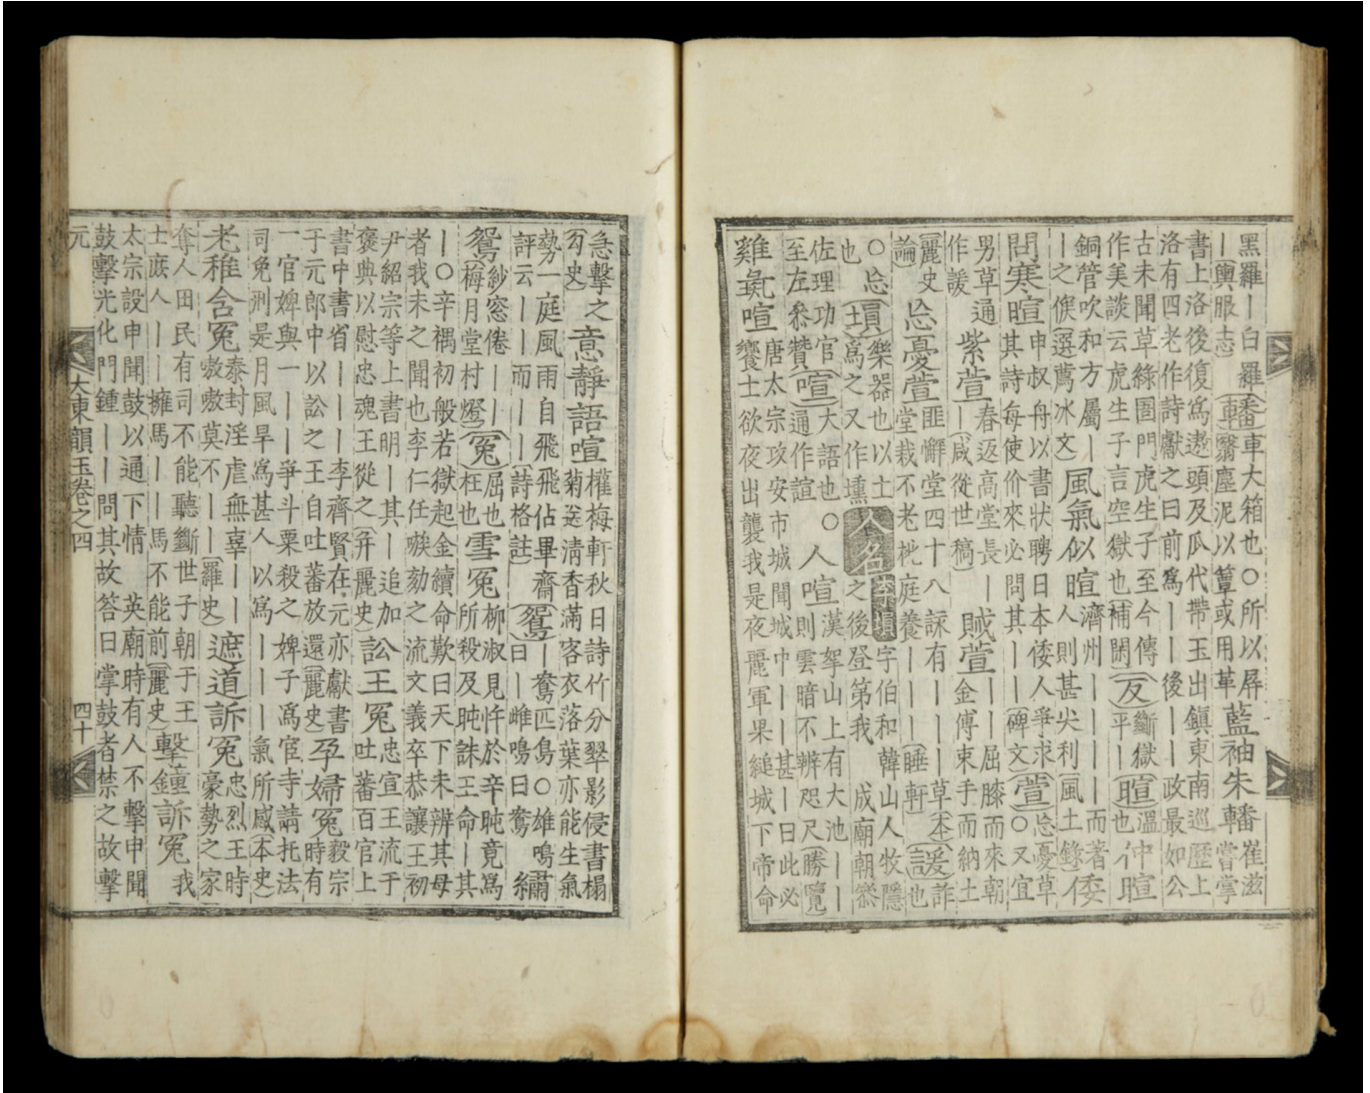 黑羅丨白羅丨(輿服志)(轓)車大箱也〇所以屏翳塵泥以簟或用革藍袖朱轓崔滋嘗掌
書上洛後復爲遨頭及瓜代帶玉出鎮東南巡歷上洛有四老作詩獻之曰前爲丨丨後丨丨政最如公
古未聞草綠圄門虎生子至今傳作美談云虎生子言空獄也補閑(反)斷獄平丨(暄)溫也仲暄
銅管吹和方屬丨丨之候(選薦冰文)風氣似暄濟州丨丨丨丨而著人則甚尖利(風土錄)倭
問寒暄申叔舟以書狀聘日本倭人爭求其詩每使价來必問其丨丨(碑文)(萱)忘憂草〇又宜
男草通作諼紫萱春返高堂長丨丨(咸從世稿)賊萱丨丨屈膝而來朝金傅束手而納土
(麗史論)忘憂萱匪懈堂四十八詠有丨丨丨草(本堂栽不老枇庭養丨丨丨(睡軒)(諼)詐也
〇忘也(塤)樂器也以土爲之又作壎人名辛塤字伯和韓山人牧隱之後登第我 成廟朝叅
佐理功官至左叅贊(喧)大語也〇通作諠人喧漢拏山上有大池丨丨則雲暗不辨咫尺(勝覽)
雞彘喧唐太宗攻安市城聞城中丨丨甚丨曰此必饗士欲夜出襲我是夜麗軍果縋城下帝命
急擊之(勾史)意靜語喧權梅軒秋日詩竹分翠影侵書榻菊送淸香滿客衣落葉亦能生氣
勢一庭風雨自飛飛佔畢齋評云丨丨而丨丨(詩格註)(鴛)丨鴦匹鳥〇雄鳴曰丨雌鳴曰鴦繡
鴛紗窓倦丨丨(梅月堂村燈)(冤)屈也枉也雪冤柳淑見忤於辛旽竟爲所殺及旽誅王命丨其
丨〇辛禑初般若獄起金續命歎曰天下未辨其母者我未之聞也李仁任嗾劾之流文義卒恭讓王初
尹紹宗等上書明丨其丨追加褒典以慰忠魂王從之(幷麗史)訟王冤忠宣王流于吐蕃百官上
書中書省丨丨丨李齊賢在元亦獻書于元郎中以訟之王自吐蕃放還(麗史)孕婦冤毅宗時有
一官婢與一丨丨爭斗粟殺之婢子爲宦寺請托法司免刑是月風旱爲甚人以爲丨丨丨氣所感(本史)
老稚含冤泰封淫虐無辜丨丨嗷嗷莫不丨丨(羅史)遮道訴冤忠烈王時豪勢之家
奪人田民有司不能聽斷世子朝于王士庶人丨丨擁馬丨丨馬不能前(麗史)擊鐘訴冤我
太宗設申聞鼓以通下情 英廟時有人不擊申聞鼓擊光化門鍾丨丨問其故答曰掌鼓者禁之故擊
元 大東韻玉卷之四 四十